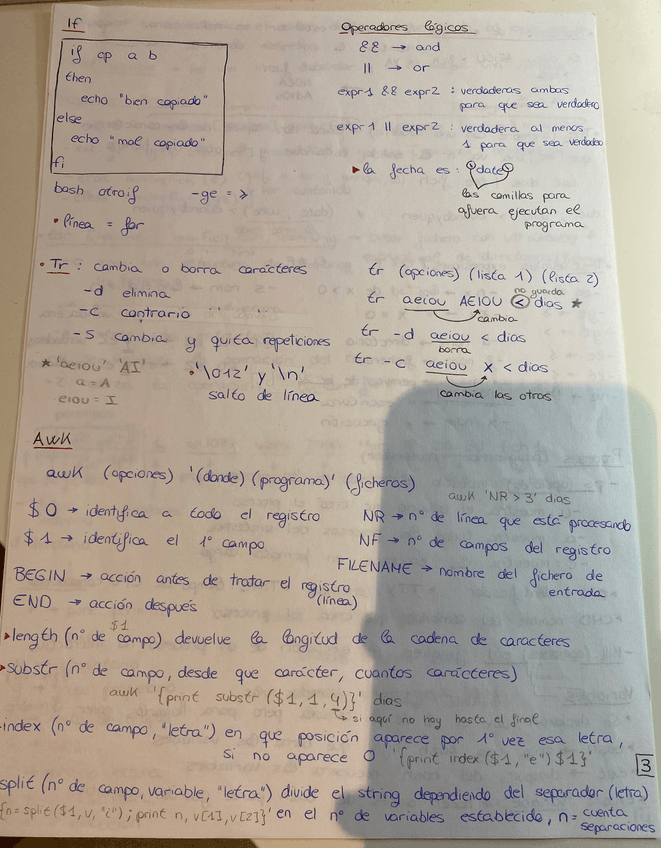 If
if cp a b
then
echo "bien copiado"
else
echo "mal copiado"
fi
bash otroif -ge = >
• línea = for
Operadores lógicos
&& → and
|| → or
expr1 && expr2 : verdaderas ambas
para que sea verdadero
expr1 || expr2 : verdadera al menos
1 para que sea verdadero
la fecha es : `date`
las comillas para
afuera ejecutan el
programa
• Tr : cambia o borra carácteres
-d elimina
-c contrario " "
-s cambia y quita repeticiones
* 'aeiou' 'AI'
a = A
eiou = I
• '\012' y '\n'
salto de línea
tr (opciones) (lista 1) (lista 2)
no guarda
tr aeiou AEIOU < dias *
cambia
tr -d aeiou < dias
borra
tr -c aeiou X < dias
cambia las otras
AWK
awk (opciones) '(donde) (programa)' (ficheros)
awk 'NR > 3' dias
$0 → identifica a todo el registro
$1 → identifica el 1º campo
NR → nº de línea que está procesando
NF → nº de campos del registro
FILENAME → nombre del fichero de
entrada
BEGIN → acción antes de tratar el registro
(línea)
END → acción después
$1
length (nº de campo) devuelve la longitud de la cadena de caracteres
substr (nº de campo, desde que carácter, cuantos carácteres)
awk '{print substr ($1, 1, 4)}' dias
→ si aquí no hay hasta el final
index (nº de campo, "letra") en que posición aparece por 1º vez esa letra,
si no aparece 0 '{print index ($1, "e") $1}'
3
split (nº de campo, variable, "letra") divide el string dependiendo del separador (letra)
{n = split ($1, v, "i") ; print n, v[1], v[2]}' en el nº de variables establecido, n = cuenta
separaciones